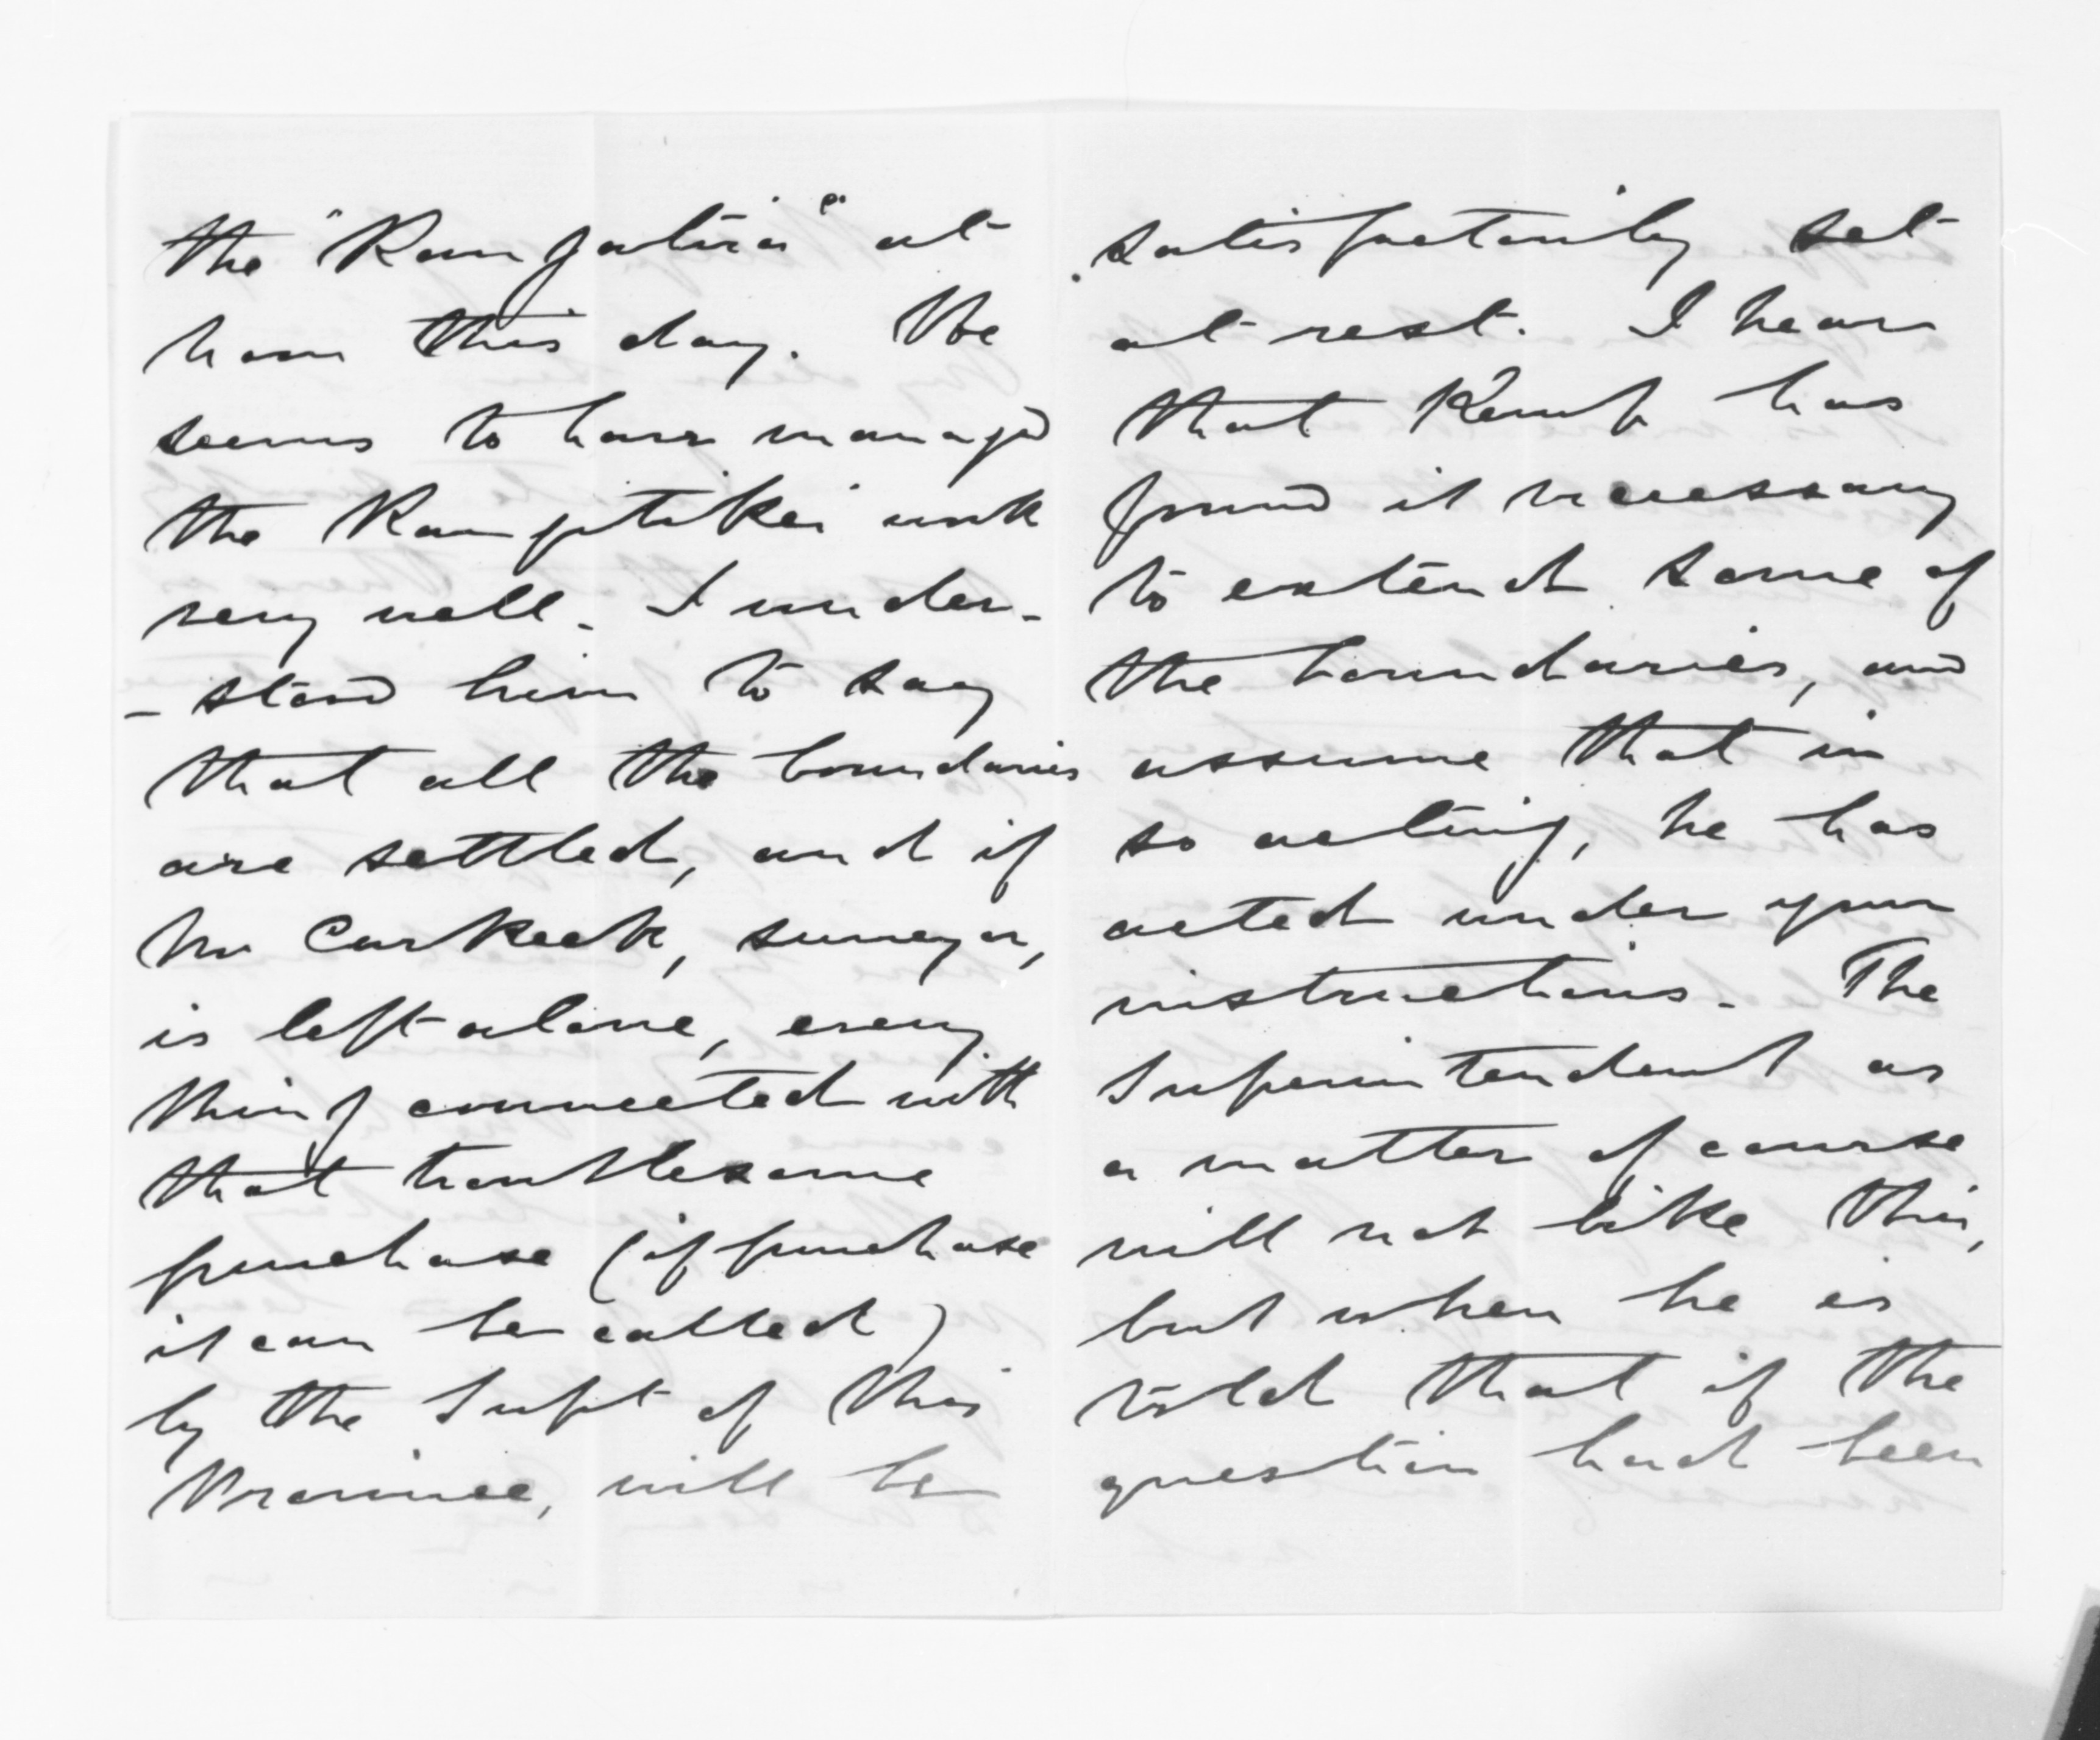 the "Rangatira" at
noon this day. He
seems to have managed
the Rangitikei work
very well. I under-
- stood him to say
that all the boundaries
are settled, and if
Mr Carkeek, surveyor,
is left alone, every
thing connected with
that troublesome
purchase (if purchase
it can be called)
by the Supt of this
Province, will be
satisfactorily set
at rest. I hear
that Kemp has
found it necessary
to extend some of
the boundaries, and
assume that in
so acting, he has
acted under your
instructions. The
Superintendent as
a matter of course
will not like this,
but when he is
told that if the
question had been